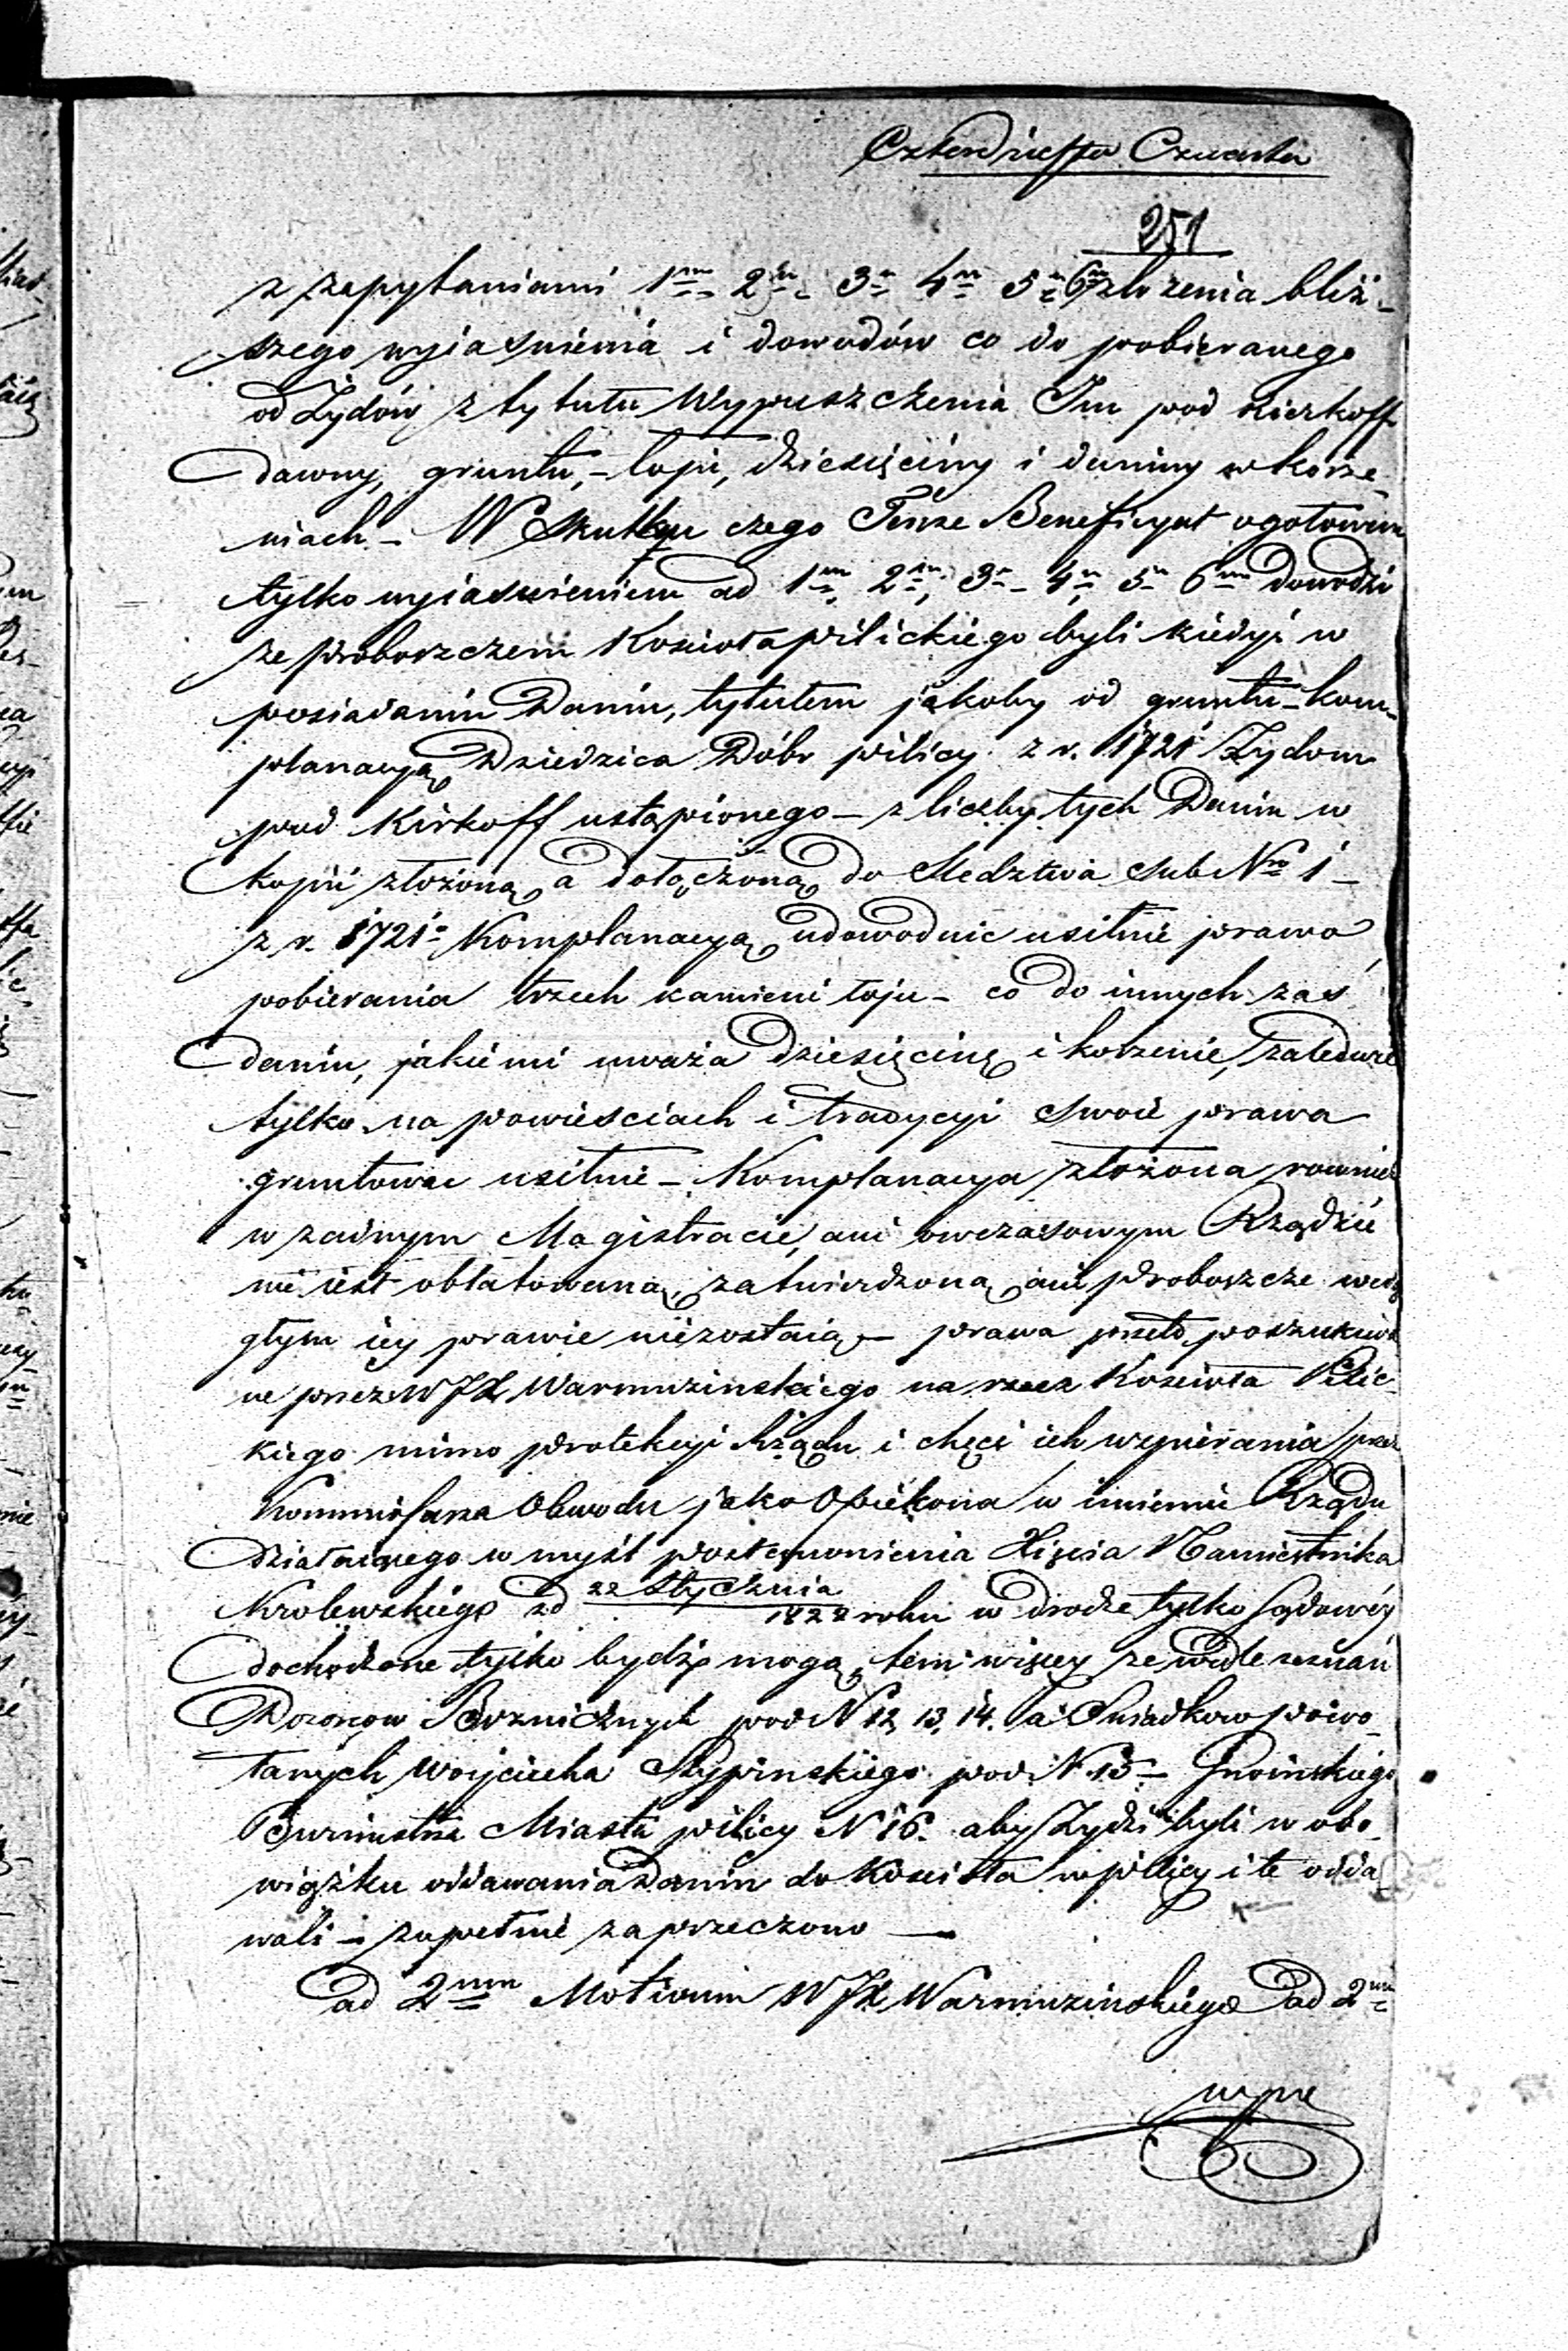 Czterdziesta Czwarta
251
z zapytaniami 1m 2m 3m 4m 5m 6m złożenia bliż-
szego wyiaśnienia i dowodów co do pobieranego
od Żydów z tytułu Wypuszczenia Im pod kierkoff
dawny, gruntu, – łoju, dziesięciny i daniny w korze-
niach – W Skutku czego Tenże Beneficyat ogołowem
tylko wyiaśnieniem ad 1m, 2m, 3m 4m 5m 6m dowodzi
że proboszczemi Kościoła pilickiego byli kiedyś w
posiadaniu Danin, tytułem jakoby od gruntu – kom-
planacyą Dziedzica Dóbr pilicy z r. 1721 Żydom
pod Kirkoff ustąpionego – z liczby tych Danin w
kopii złożoną, a dołączoną do Sledztwa sub Nro 1 –
z r. 1721o Komplanacyą, udowodnić usilnie prawo
pobierania trzech kamieni łoju – co do innych zaś
danin, jakiemi uważa dziesięcinę i korzenie, zaledwie
tylko na powieściach i tradycyi swoie prawa
gruntować usilnie – Komplanacya złożona rownież
w żadnym Magistracie, ani owczasowym Rządzie
nie iest oblatowaną, zatwierdzoną, anii Proboszcze wcią
głym iey prawie niezostaią – prawa przeto poszukiwa
ne przez WJX Warmuzinskiego na rzecz Kościoła Pilic-
kiego mimo protekcyi Rządu i chęci ich wspierania przez
Kommissarza Obwodu jako Opiekona w imieniu Rządu
działaiącego w myśl postanowienia Xięcia Namiestnika
Krolewskiego zd 22 Stycznia 1822 roku w drodze tylko sądowéy
dochodzone tylko bydź mogą, tem więcey że wedle zeznań
Dozorow Bozniczných pod N 12, 13, 14. a Swiadkow powo-
łanych Woyciecha Slypinskiego pod N 15 – Gnoinskiego
Burmistrza Miasta pilicy N 16. aby Żydzi byli w obo-
wiązku oddawania Danin do Kościoła w pilicy i te odda-
wali – zupełnie zaprzeczono —
ad 2num Motivum WJX Warmuzinskiego ad 2m